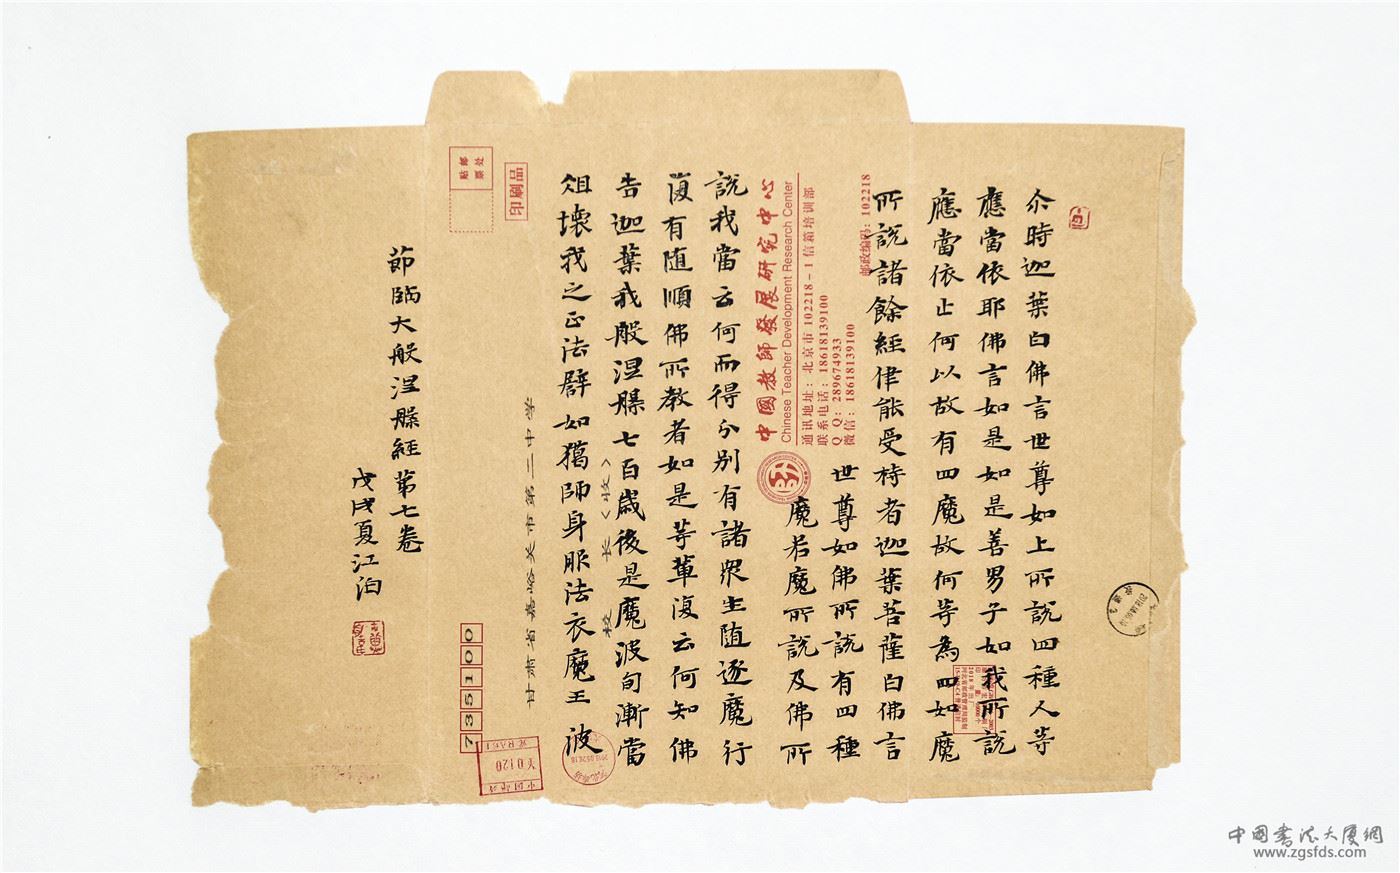 尒時迦葉白佛言世尊如上所説四種人等
應當依耶佛言如是如是善男子如我所説
應當依止何以故有四魔故何等為四如魔
所説諸餘經律能受持者迦葉菩薩白佛言
世尊如佛所説有四種
魔若魔所説及佛所
説我當云何而得分別有諸衆生随逐魔行
復有随順佛所教者如是等輩復云何知佛
告迦葉我般涅槃七百歳後是魔波旬漸當
俎壊我之正法辟如猎師身服法衣魔王波
節臨大般涅槃經第七卷
戊戌夏江泊
邮政编码：102218
微信：18618139100
Q Q：289674933
联系电话：18618139100
通讯地址：北京市 102218-1 信箱培训部
Chinese Teacher Development Research Center
中國教師發展研究中心
校 长（收）
甘肃省嘉峪关市第三中学
印刷品
贴邮
票处
735100
中国邮政
¥0120
中国书法大厦網
www.zgsfds.com